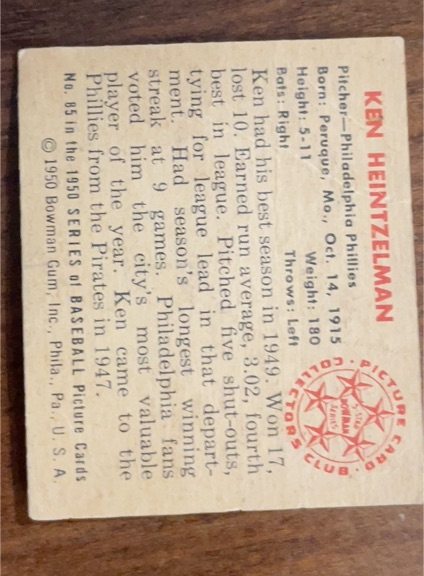 KEN HEINTZELMAN
Pitcher—Philadelphia Phillies
Born: Peruque, Mo., Oct. 14, 1915
Height: 5-11 Weight: 180
Bats: Right Throws: Left
Ken had his best season in 1949. Won 17,
lost 10. Earned run average, 3.02, fourth
best in league. Pitched five shut-outs,
tying for league lead in that depart-
ment. Had season's longest winning
streak at 9 games. Philadelphia fans
voted him the city's most valuable
player of the year. Ken came to the
Phillies from the Pirates in 1947.
No. 85 in the 1950 SERIES of BASEBALL Picture Cards
© 1950 Bowman Gum, Inc., Phila., Pa., U. S. A.
PICTURE CARD
COLLECTORS CLUB
5-STAR
BOWMAN